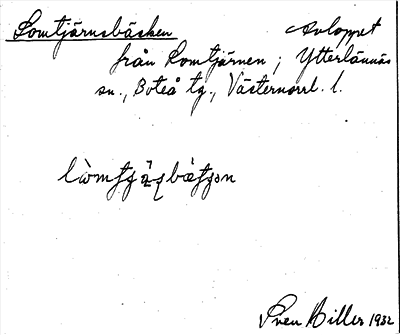 Lomtjärnsbäcken Avloppet
från Lomtjärnen; Ytterlännäs
sn., Boteå tg., Västernorrl. l.
Sven Biller 1932